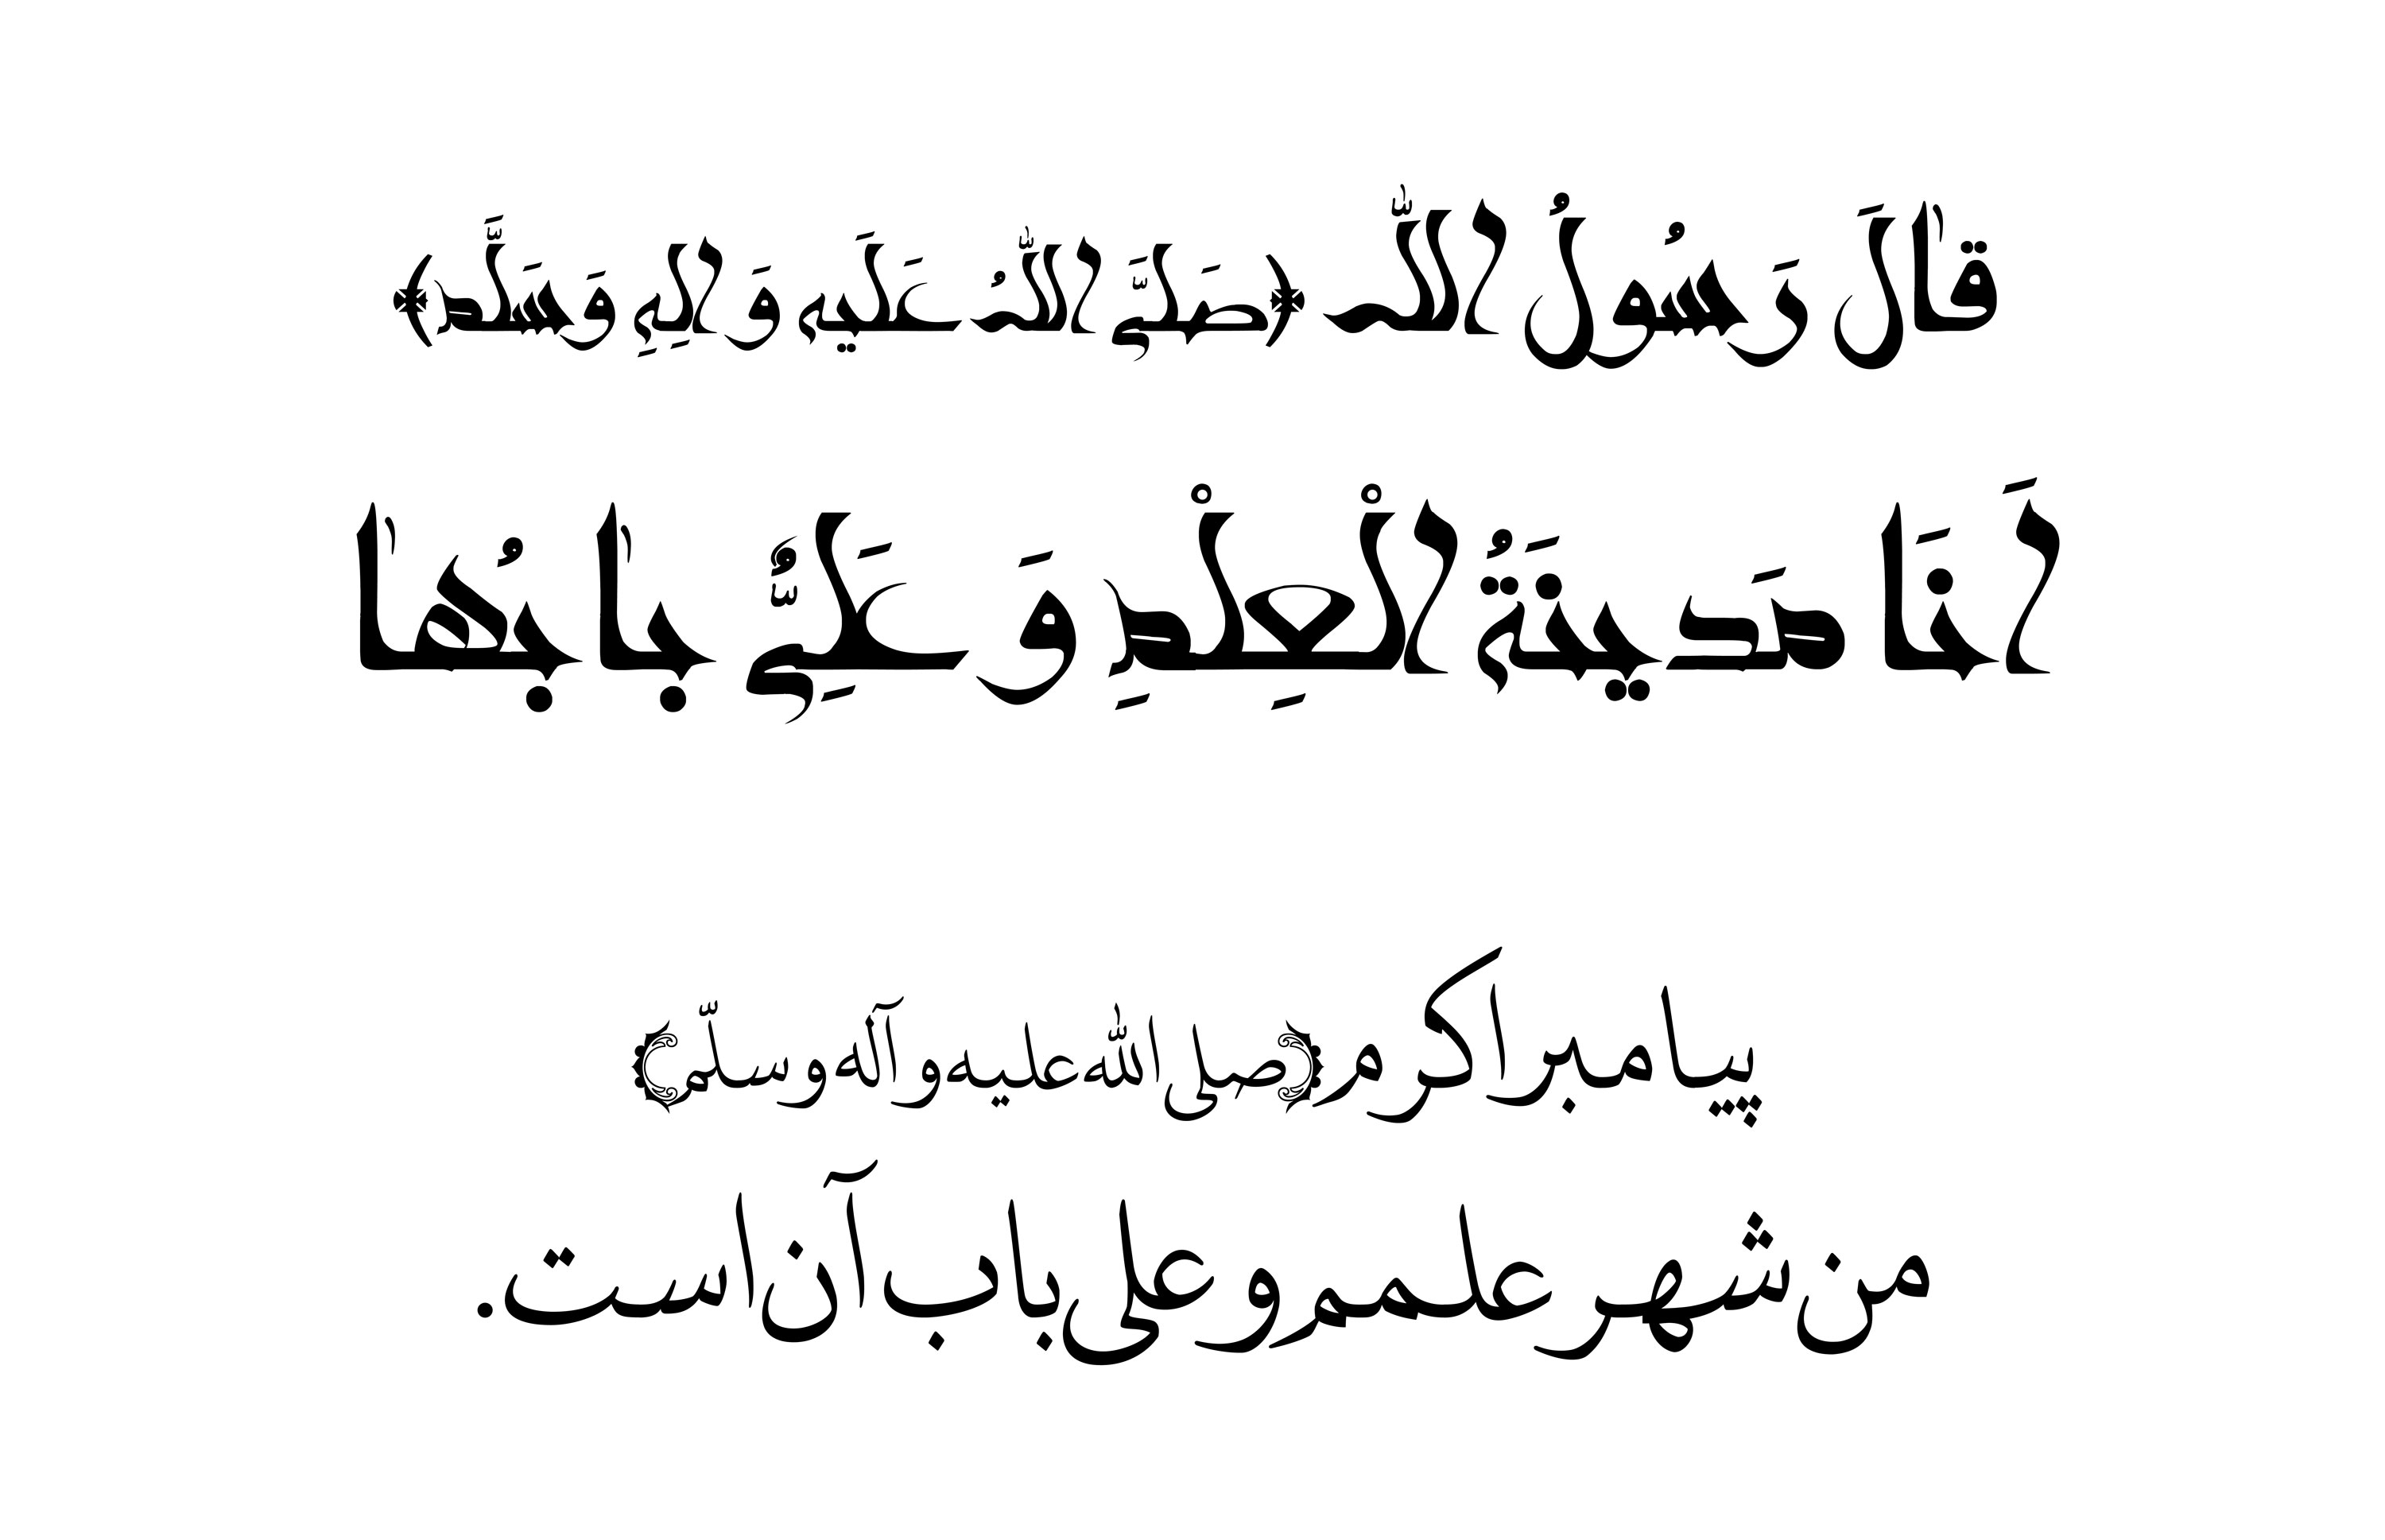 قَالَ رَسُولُ اللّٰه (صَلَّی اللّٰهُ عَلَیهِ وَ الِهِ وَ سَلَّم)
اَنَا مَدینَةُ الْعِلْمِ وَ عَلِیٌّ بابُها
پیامبر اکرم (صلی اللّٰه علیه و آله و سلّم)
من شهر علمم و علی باب آن است.